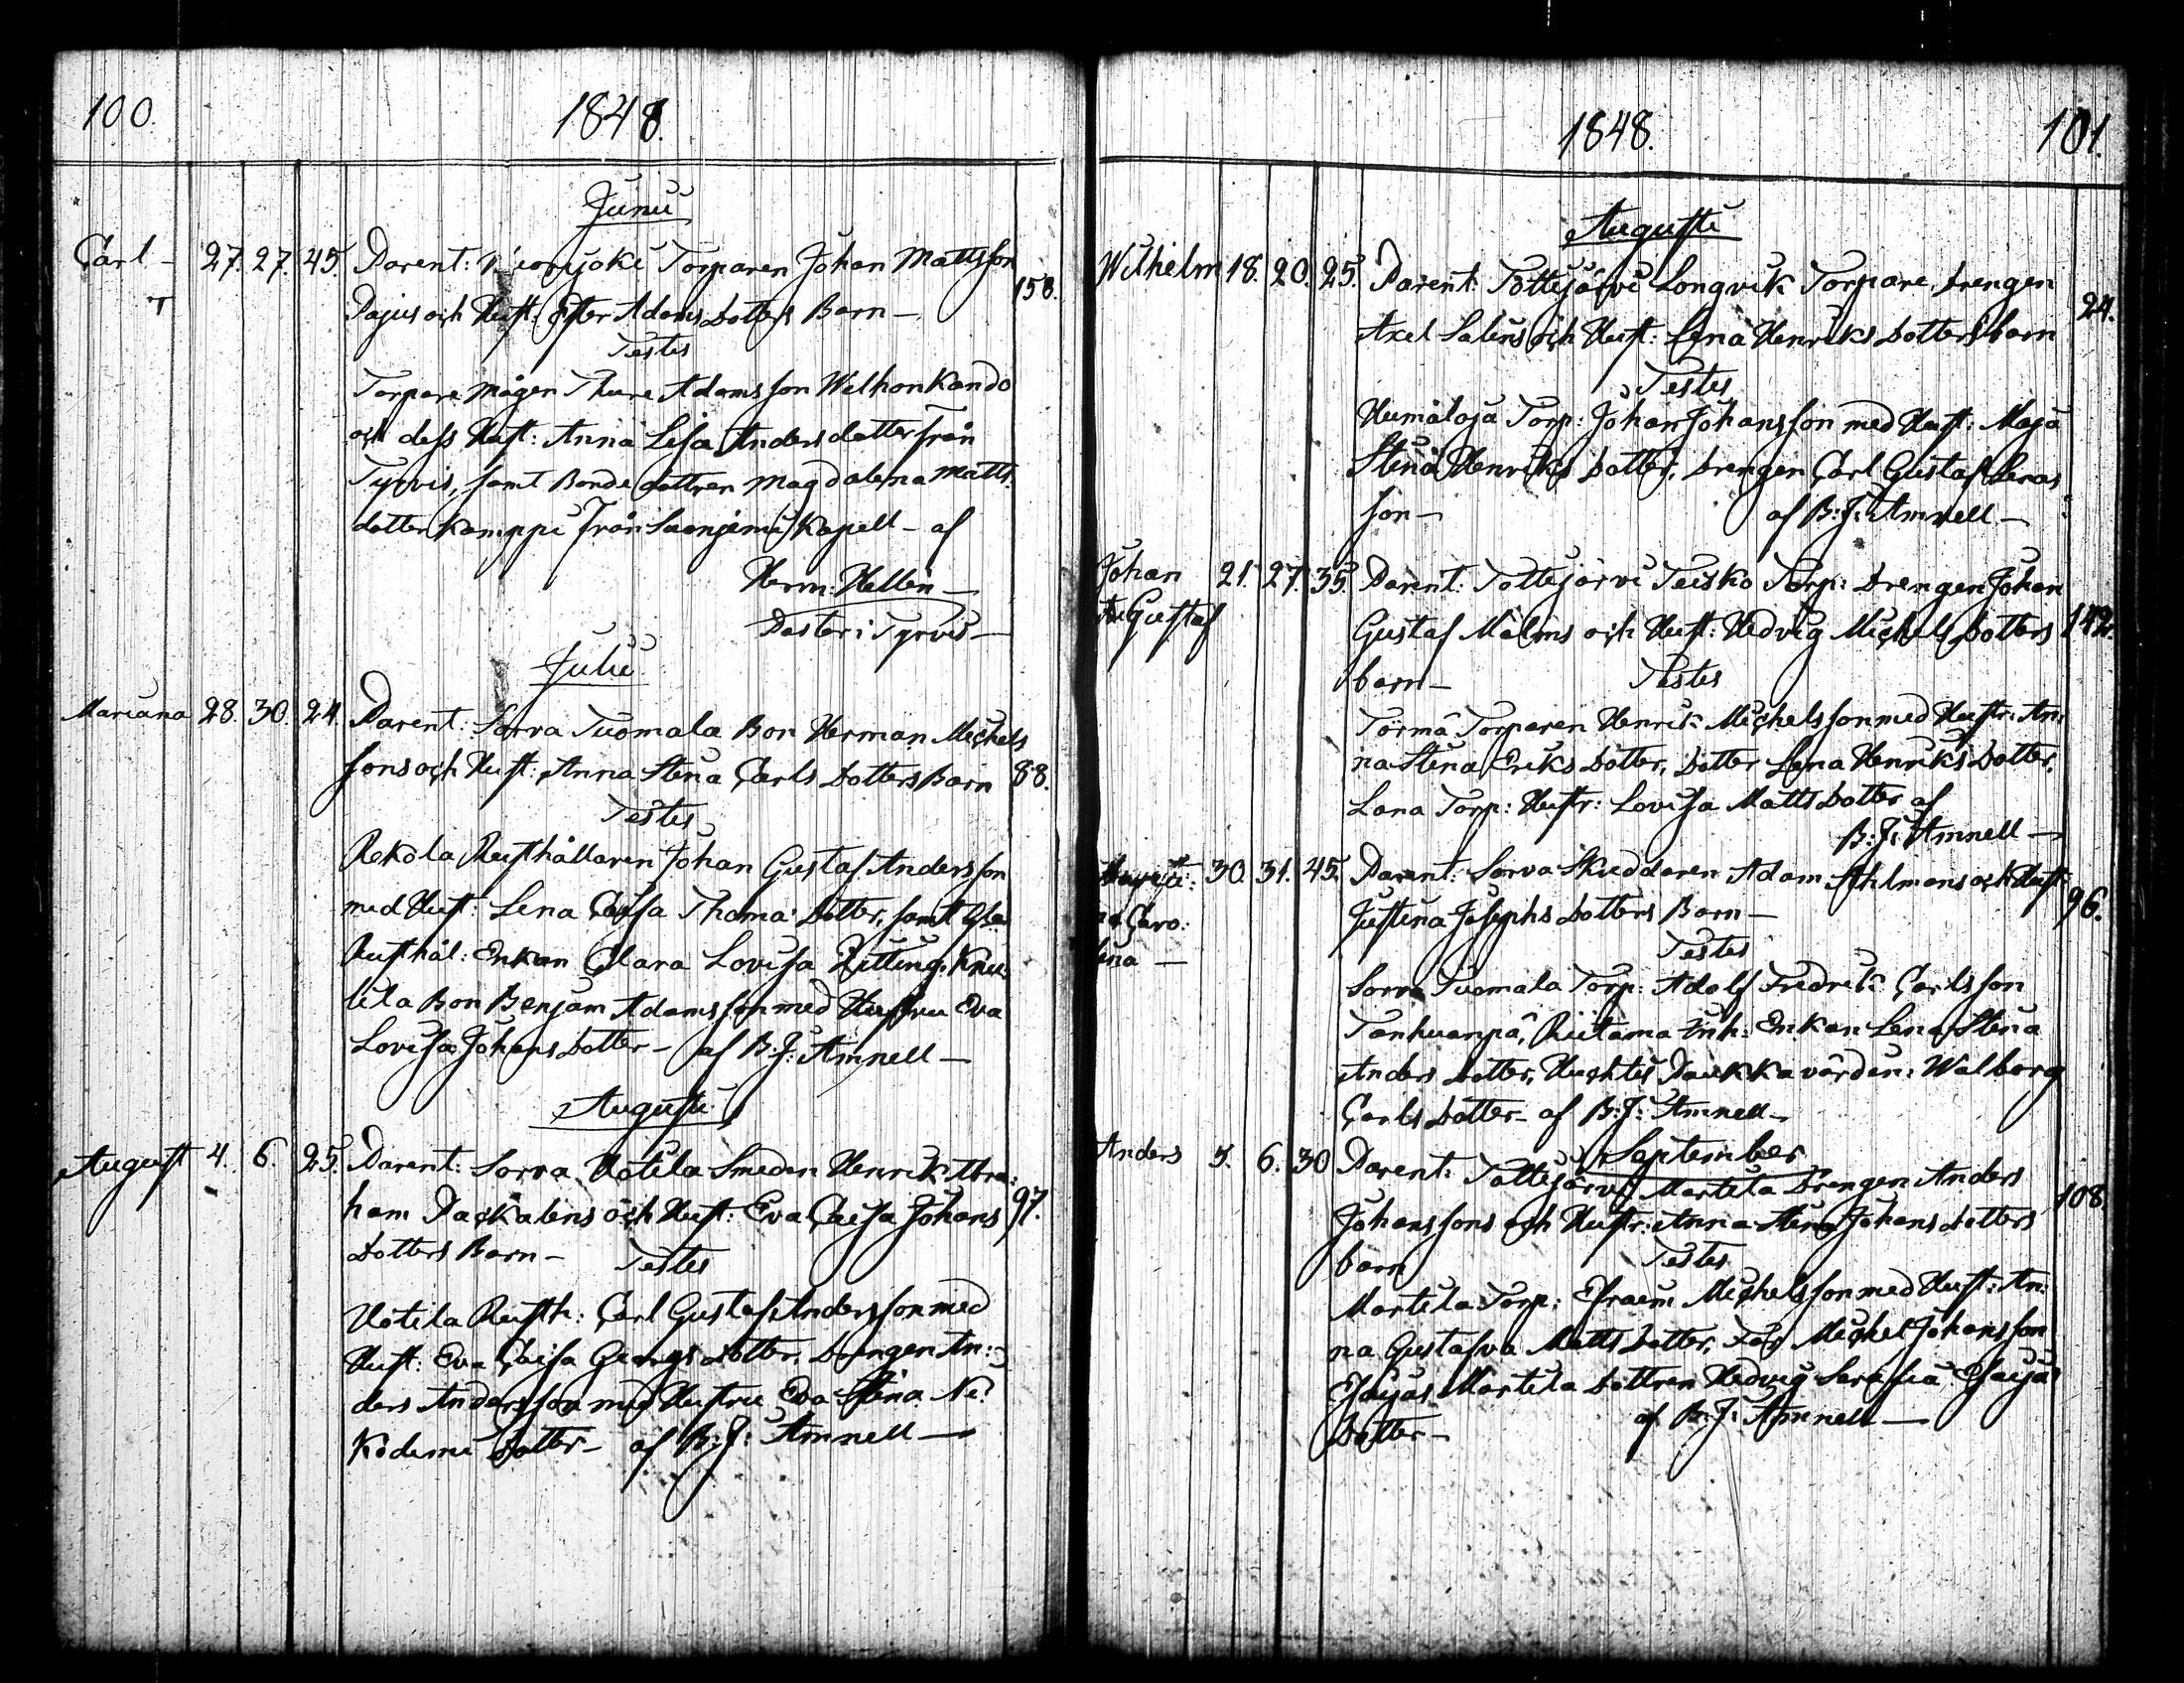 100.
1848.
Junii
Carl - 27. 27. 45. Parent: Torparen Johan Mattsson
Pajus och Hust: Ester Adams Dotters Barn - 158.
Testes
Torpare mågen Thure Adamsson Welhonkando
och dess Hust: Anna Lisa Andersdotter från
Tyrvis, samt Bonde dottren Magdalena Matts
dotter Kamppi från Kapell - af
Herm: Hellén -
Pastor i Tyrvis -
Julii
Mariana 28. 30. 24. Parent: Sorva Tuomala Bon Herman Michels
sons och Hust: Anna Stina Carls Dotters Barn 88.
Testes
Rekola Rusthållaren Johan Gustaf Andersson
med Hust: Lena Caisa Thoma Dotter, samt
Rusthål: Enkan Clara Lovisa Knuu
tila Bon Benjam Adamsson med Hustru Eva
Lovisa Johans Dotter - af B: J: Amnell -
Augusti
August 4. 6. 25. Parent: Sorva Uotila Smeden Henrik Abra:
ham Packalens och Hust: Eva Caisa Johans 97.
Dotters Barn - Testes
Uotila Rusth: Carl Gustaf Andersson med
Hust: Eva Caisa Georgs Dotter, Drengen An:
ders Andersson med Hustru Eva Stina Ni:
kodemi Dotter - af B: J: Amnell -
1848.
101.
Augusti
Wilhelm 18. 20. 25. Parent: Tottijärvi Longvik Torpare, Drengen
Axel Salins och Hust: Lena Henriks Dotters barn 24.
Testes
Humaloja Torp: Johan Johansson med Hust: Maja
Stina Henriks Dotter, Drengen Carl Gustaf
son - af B: J: Amnell -
Johan 21. 27. 35. Parent: Tottijärvi Teisko Torp: Drengen Johan
Gustaf Gustaf Malms och Hust: Hedvig Michels Dotters 142.
barn - Testes
Törmä Torparen Henrik Michelsson med Hustr: An:
na Stina Eriks Dotter, Dotter Lena Henriks Dotter,
Lana Torp: Hustr: Lovisa Matts Dotter af
B: J: Amnell -
30. 31. 45. Parent: Sorva Skräddaren Adam Ahlmans och Hust:
Caro: Justina Josephs Dotters Barn - 96.
lina - Testes
Sorva Tuomala Torp: Adolf Fredrik Carlsson
Tanhuanpä, Riitama Inh: Enkan Lena Stina
Anders Dotter, Huchtis Paukka värden: Walborg
Carls Dotter - af B: J: Amnell -
September
Anders 5. 6. 30 Parent: Tottijärvi Martila Drengen Anders
Johanssons och Hustr: Anna Stina Johans Dotters 108.
barn Testes
Martila Torp: Efraim Michelsson med Hust: An:
na Gustafva Matts Dotter, Michel Johansson
Martila Dottren Hedvig Serafia Esaja
Dotter - af B: J: Amnell -